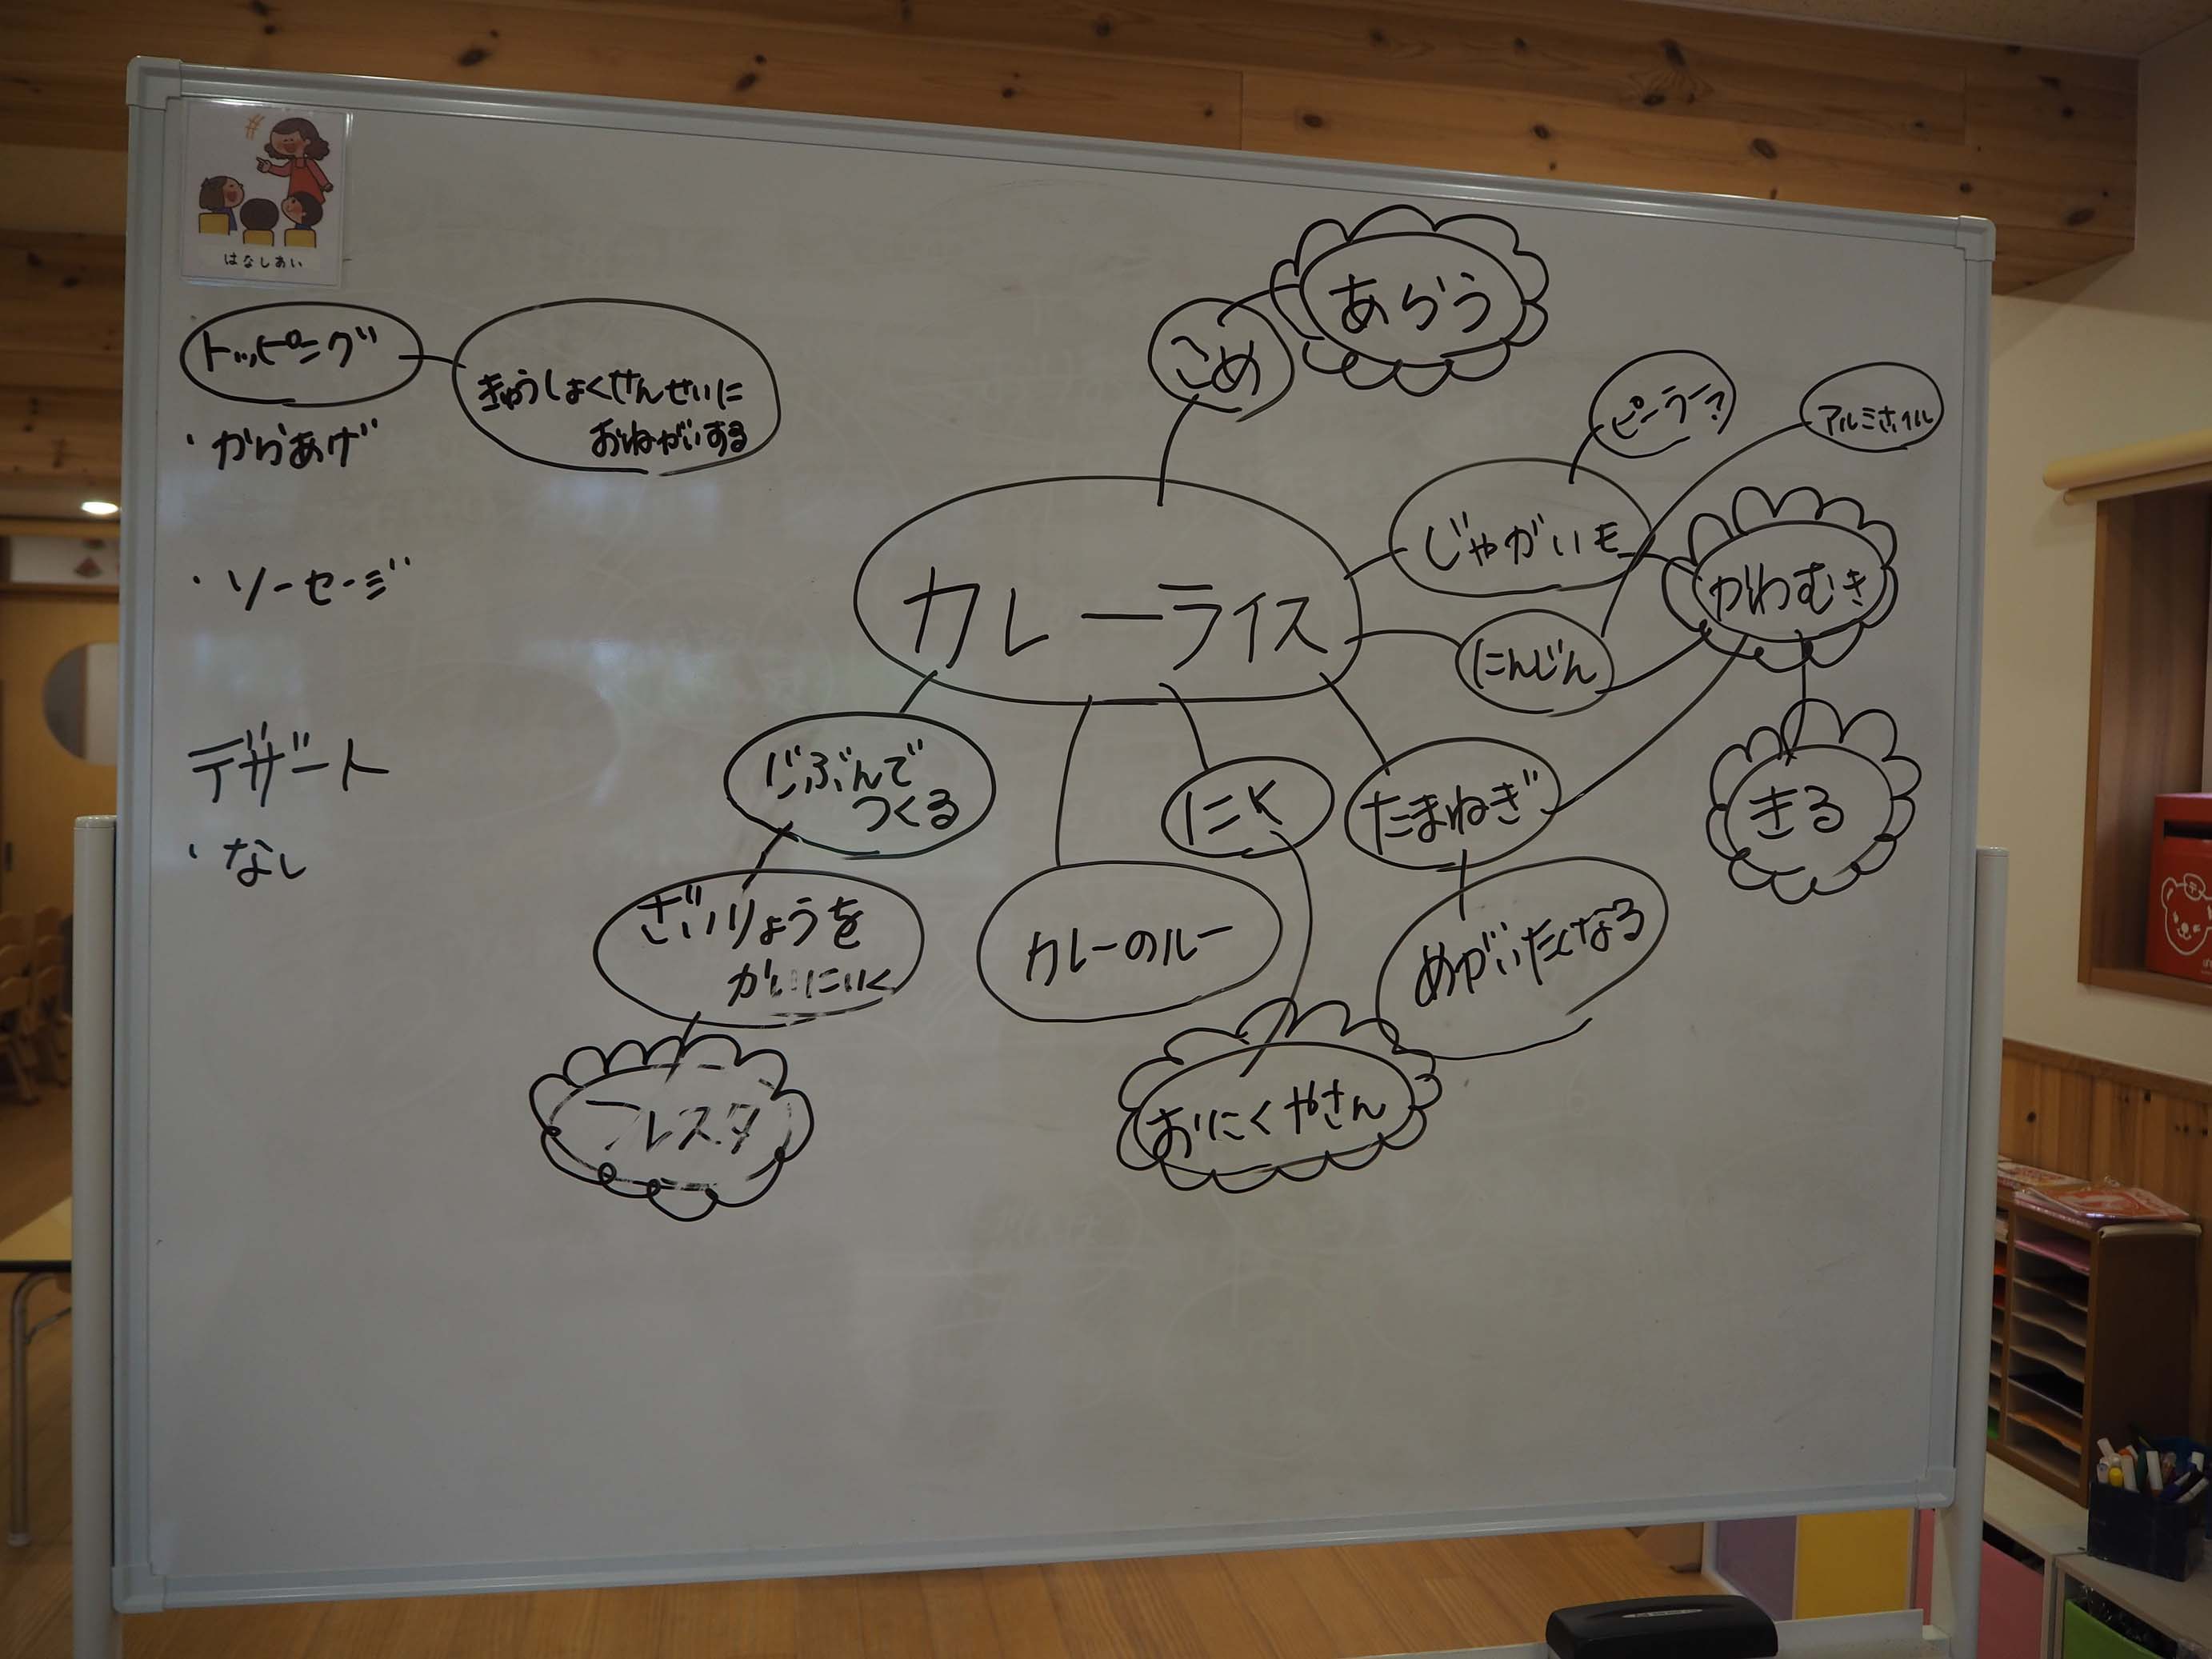 はなしあい
トッピング
きゅうしょくせんせいに
おねがいする
・からあげ
・ソーセージ
デザート
・なし
あらう
こめ
ピーラー?
アルミホイル
カレーライス
じゃがいモ
かわむき
にんじん
きる
じぶんで
つくる
にく
たまねぎ
ざいりょうを
かいにいく
カレーのルー
めがいたくなる
フレスタ
おにくやさん